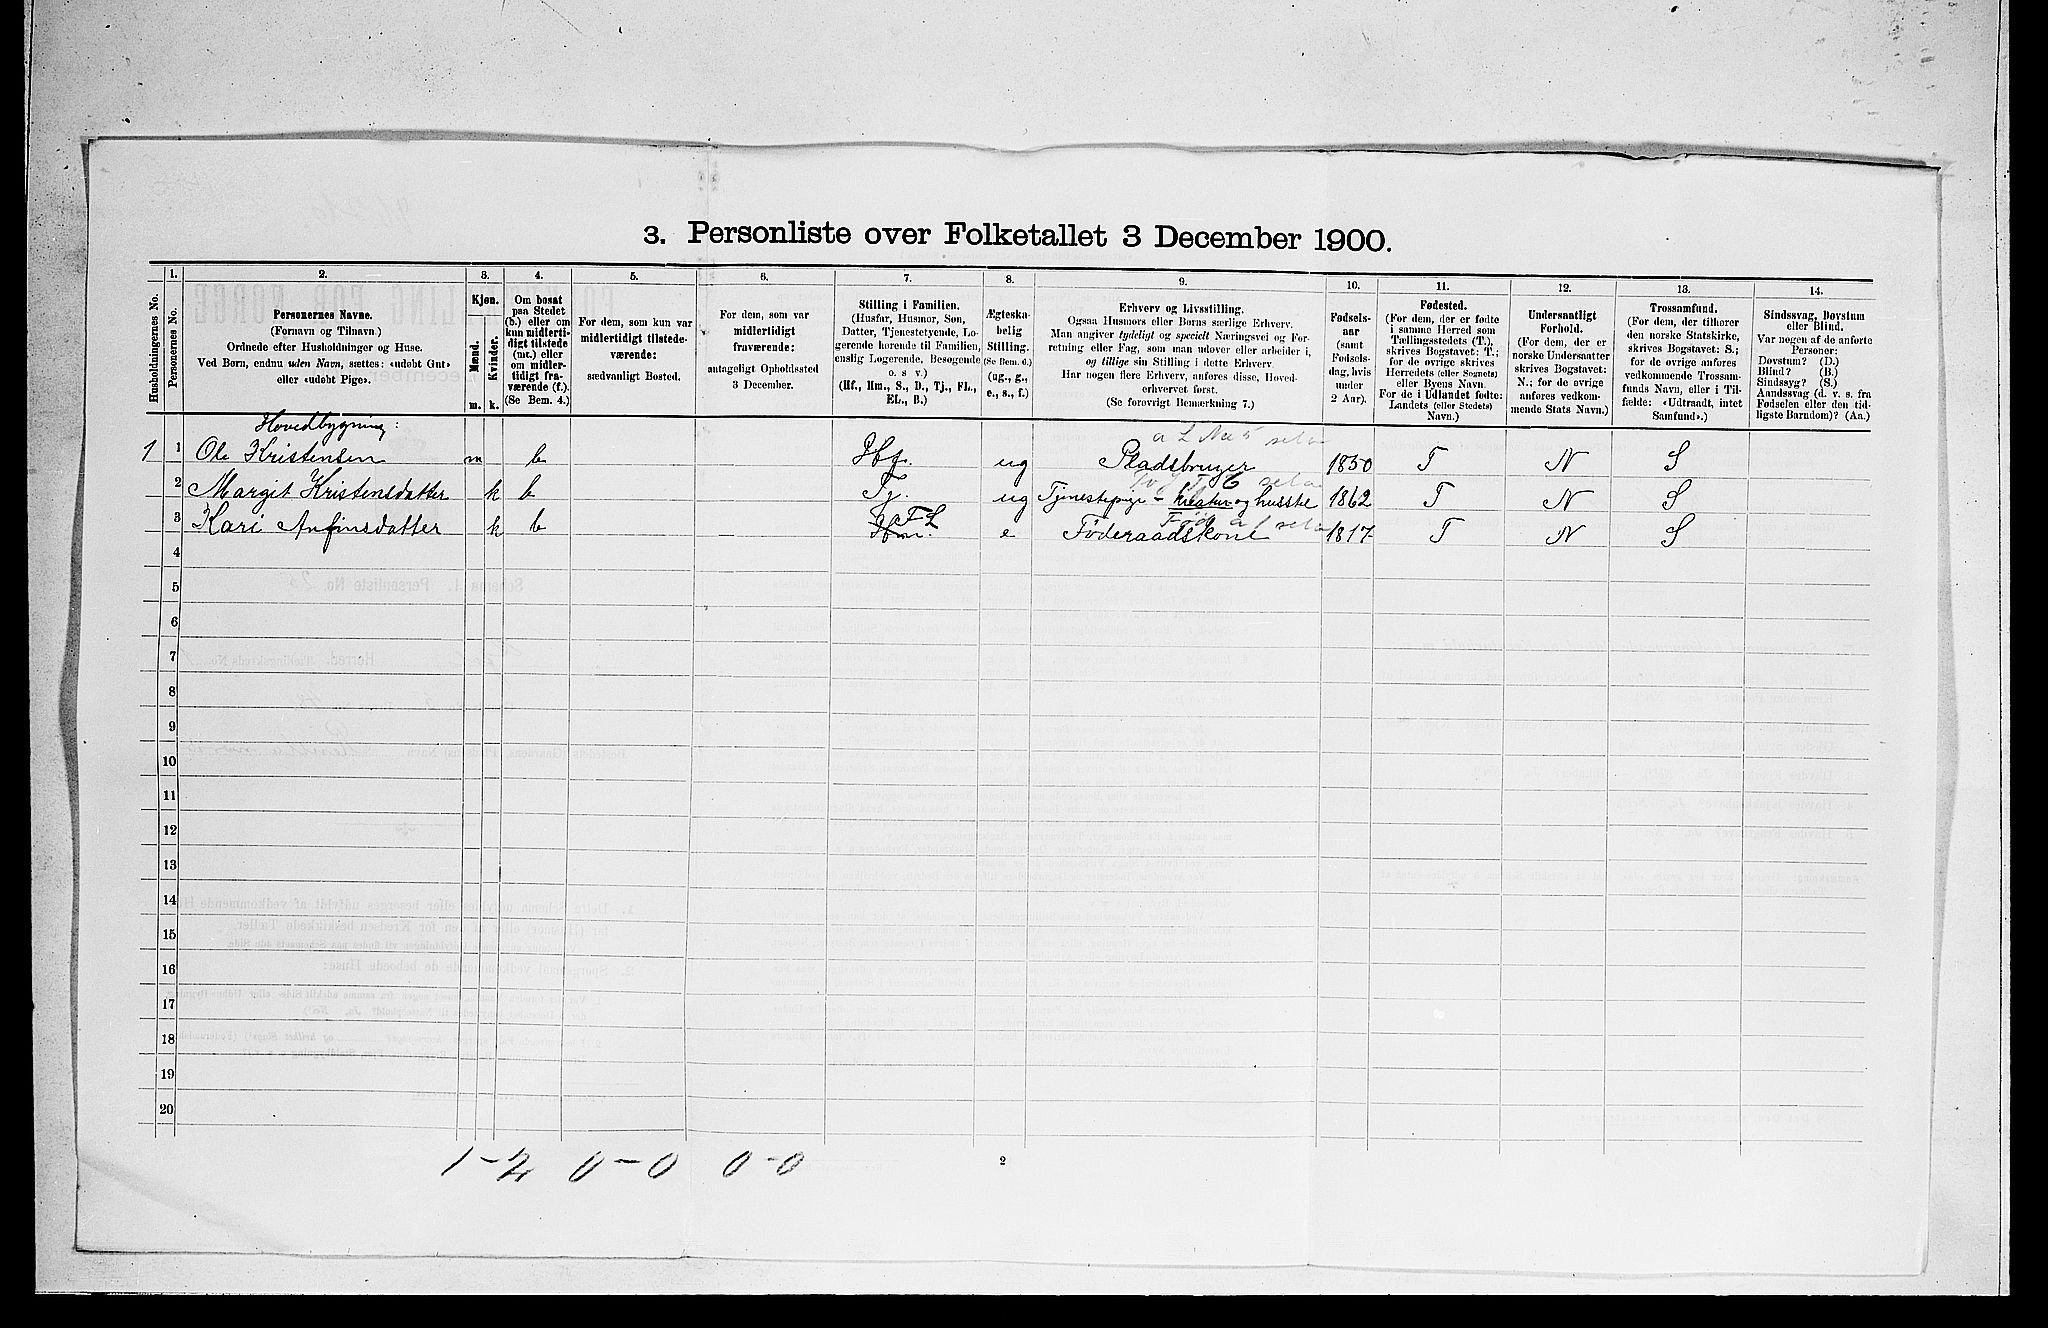 3. Personliste over Folketallet 3 December 1900.
Husholdningernes No.
1.
Personernes No.
2.
Personernes Navne.
(Fornavn og Tilnavn.)
Ordnede efter Husholdninger og Huse.
Ved Børn, endnu uden Navn, sættes: «udøbt Gut»
eller «udøbt Pige».
3.
Kjøn.
Mænd.
Kvinder.
m. k.
4.
Om bosat
paa Stedet
(b.) eller om
kun midlerti-
digt tilstede
(mt.) eller
om midler-
tidigt fra-
værende (f.).
(Se Bem. 4.)
5.
For dem, som kun var
midlertidigt tilstede-
værende:
sædvanligt Bosted.
6.
For dem, som var
midlertidigt
fraværende:
antageligt Opholdssted
3 December.
7.
Stilling i Familien.
(Husfar, Husmor, Søn,
Datter, Tjenestetyende, Lo-
gerende hørende til Familien,
enslig Logerende, Besøgende
o. s. v.)
(Hf., Hm., S., D., Tj., FL.,
EL., B.)
8.
Ægteska-
belig
Stilling.
(Se Bem. 6.)
(ug., g.,
e., s., f.)
9.
Erhverv og Livsstilling.
Ogsaa Husmors eller Børns særlige Erhverv.
Man angiver tydeligt og specielt Næringsvei og For-
retning eller Fag, som man udøver eller arbeider i,
og tillige sin Stilling i dette Erhverv.
Har nogen flere Erhverv, anføres disse, Hoved-
erhvervet først.
(Se forøvrigt Bemærkning 7.)
10.
Fødsels-
aar
(samt
Fødsels-
dag, hvis
under
2 Aar).
11.
Fødested.
(For dem, der er fødte
i samme Herred som
Tællingsstedets (T.),
skrives Bogstavet: T.;
for de øvrige skrives
Herredets (eller Sognets)
eller Byens Navn.
For de i Udlandet fødte:
Landets (eller Stedets)
Navn.)
12.
Undersaatligt
Forhold.
(For dem, der er
norske Undersaatter
skrives Bogstavet:
N.; for de øvrige
anføres vedkom-
mende Stats Navn.)
13.
Trossamfund.
(For dem, der tilhører
den norske Statskirke,
skrives Bogstavet: S.;
for de øvrige anføres
vedkommende Trossam-
funds Navn, eller i Til-
fælde: «Udtraadt, intet
Samfund».)
14.
Sindssvag, Døvstum
eller Blind.
Var nogen af de anførte
Personer:
Døvstum? (D.)
Blind? (B.)
Sindssyg? (S.)
Aandssvag (d. v. s. fra
Fødselen eller den tid-
ligste Barndom)? (Aa.)
Hovedbygning:
1 1 Ole Kristensen m b Hf. ug Pladsbruger 1850 T N S
2 Margit Kristensdatter k b Tj. ug Tjenestepige - kreatur og husstel 1862 T N S
3 Kari Anfinsdatter k b Hm. FL e Føderaadskone 1817 T N S
4
5
6
7
8
9
10
11
12
13
14
15
16
17
18
19
20
1-2 0-0 0-0
2